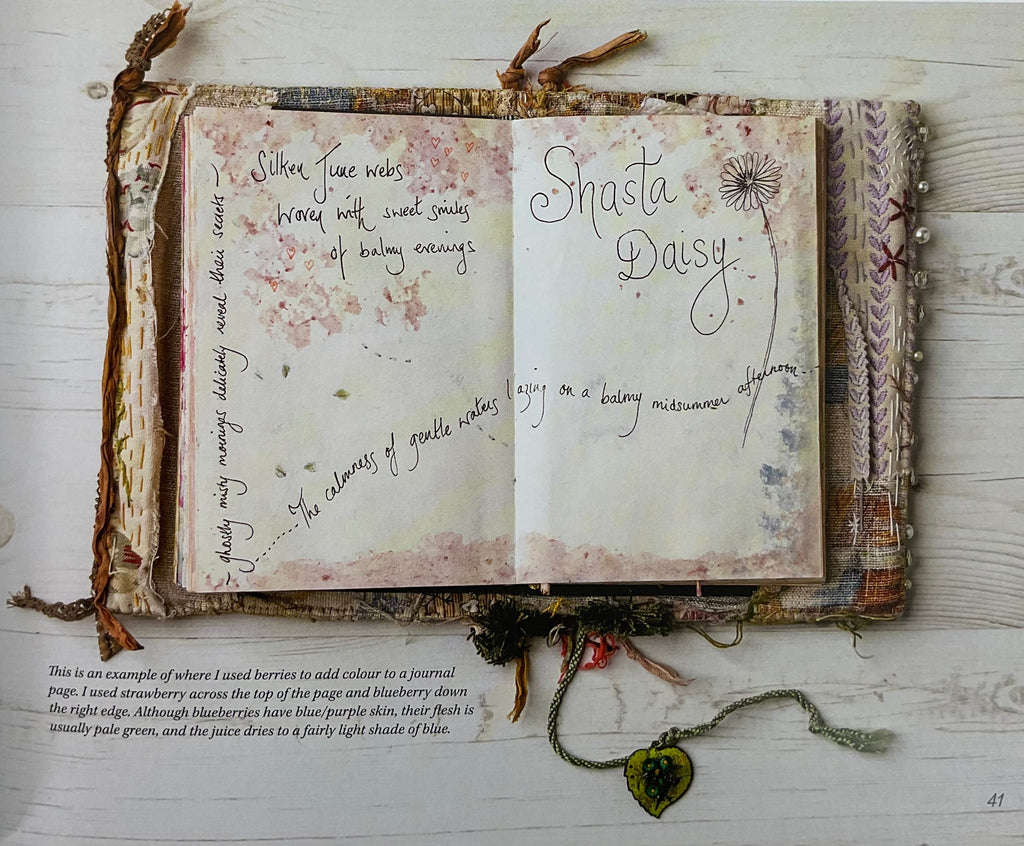 ~ ghostly misty mornings delicately reveal their secrets ~
Silken June webs
woven with sweet smiles
of balmy evenings
Shasta
Daisy
------- The calmness of gentle waters lazing on a balmy midsummer afternoon---
This is an example of where I used berries to add colour to a journal
page. I used strawberry across the top of the page and blueberry down
the right edge. Although blueberries have blue/purple skin, their flesh is
usually pale green, and the juice dries to a fairly light shade of blue.
41